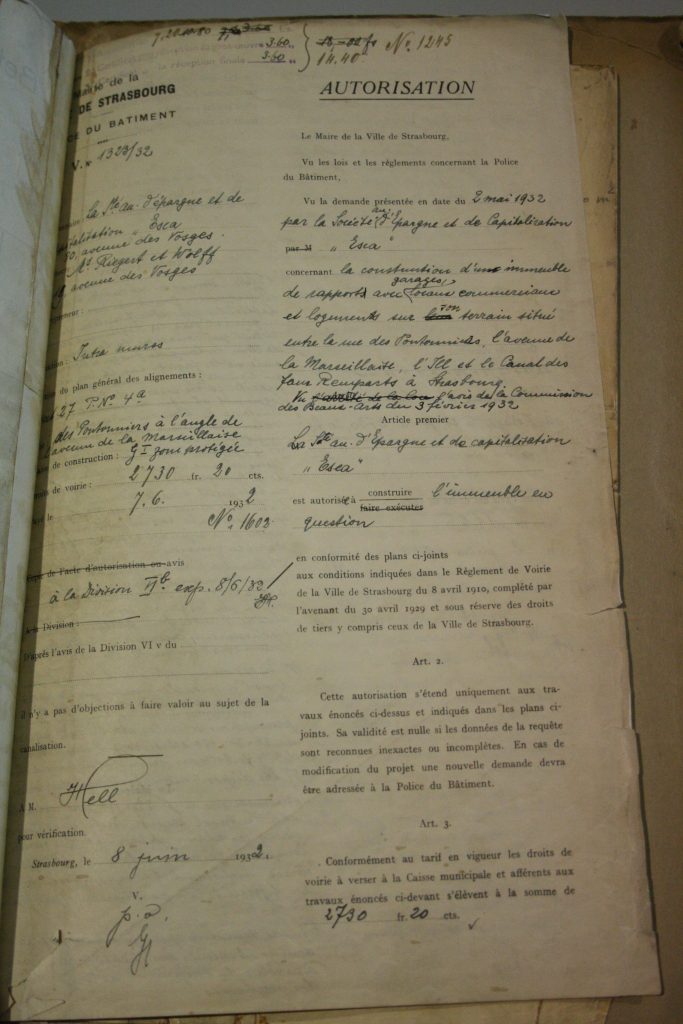 3.60
3.60
la réception finale
14.40
No. 1245
Mairie de la
DE STRASBOURG
DU BATIMENT
V. No 1323/32
La Sté an. d'épargne et de
capitalisation „Esca"
30, avenue des Vosges.
Ms. Riegert et Wolff
avenue des Vosges
Intra muros
du plan général des alignements :
27 P. No 4a
des Pontonniers à l'angle de
l'avenue de la Marseillaise
de construction : G I zone protégée
de voirie : 2730 fr. 20 cts.
le 7.6. 1932
No. 1602
Copie de l'acte d'autorisation ou avis
à la Division VIb. exp. 8/6/32
A la Division :
D'après l'avis de la Division VI v du
il n'y a pas d'objections à faire valoir au sujet de la
canalisation.
A M. Hell
pour vérification
Strasbourg, le 8 juin 1932.
V.
p. a.
AUTORISATION
Le Maire de la Ville de Strasbourg,
Vu les lois et les règlements concernant la Police
du Bâtiment,
Vu la demande présentée en date du 2 mai 1932
par la Société an. d'Epargne et de Capitalisation
par M „Esca"
concernant la construction d'un immeuble
de rapport avec garages, locaux commerciaux
et logements sur son terrain situé
entre la rue des Pontonniers, l'avenue de
la Marseillaise, l'Ill et le Canal des
faux Remparts à Strasbourg
Vu l'avis de la Commission
des Beaux-Arts du 3 février 1932
Article premier
La Sté an. d'Epargne et de capitalisation
„Esca"
est autorisée à construire l'immeuble en
faire exécuter
question
en conformité des plans ci-joints
aux conditions indiquées dans le Règlement de Voirie
de la Ville de Strasbourg du 8 avril 1910, complété par
l'avenant du 30 avril 1929 et sous réserve des droits
de tiers y compris ceux de la Ville de Strasbourg.
Art. 2.
Cette autorisation s'étend uniquement aux tra-
vaux énoncés ci-dessus et indiqués dans les plans ci-
joints. Sa validité est nulle si les données de la requête
sont reconnues inexactes ou incomplètes. En cas de
modification du projet une nouvelle demande devra
être adressée à la Police du Bâtiment.
Art. 3.
Conformément au tarif en vigueur les droits de
voirie à verser à la Caisse municipale et afférents aux
travaux énoncés ci-devant s'élèvent à la somme de
2730 fr. 20 cts.